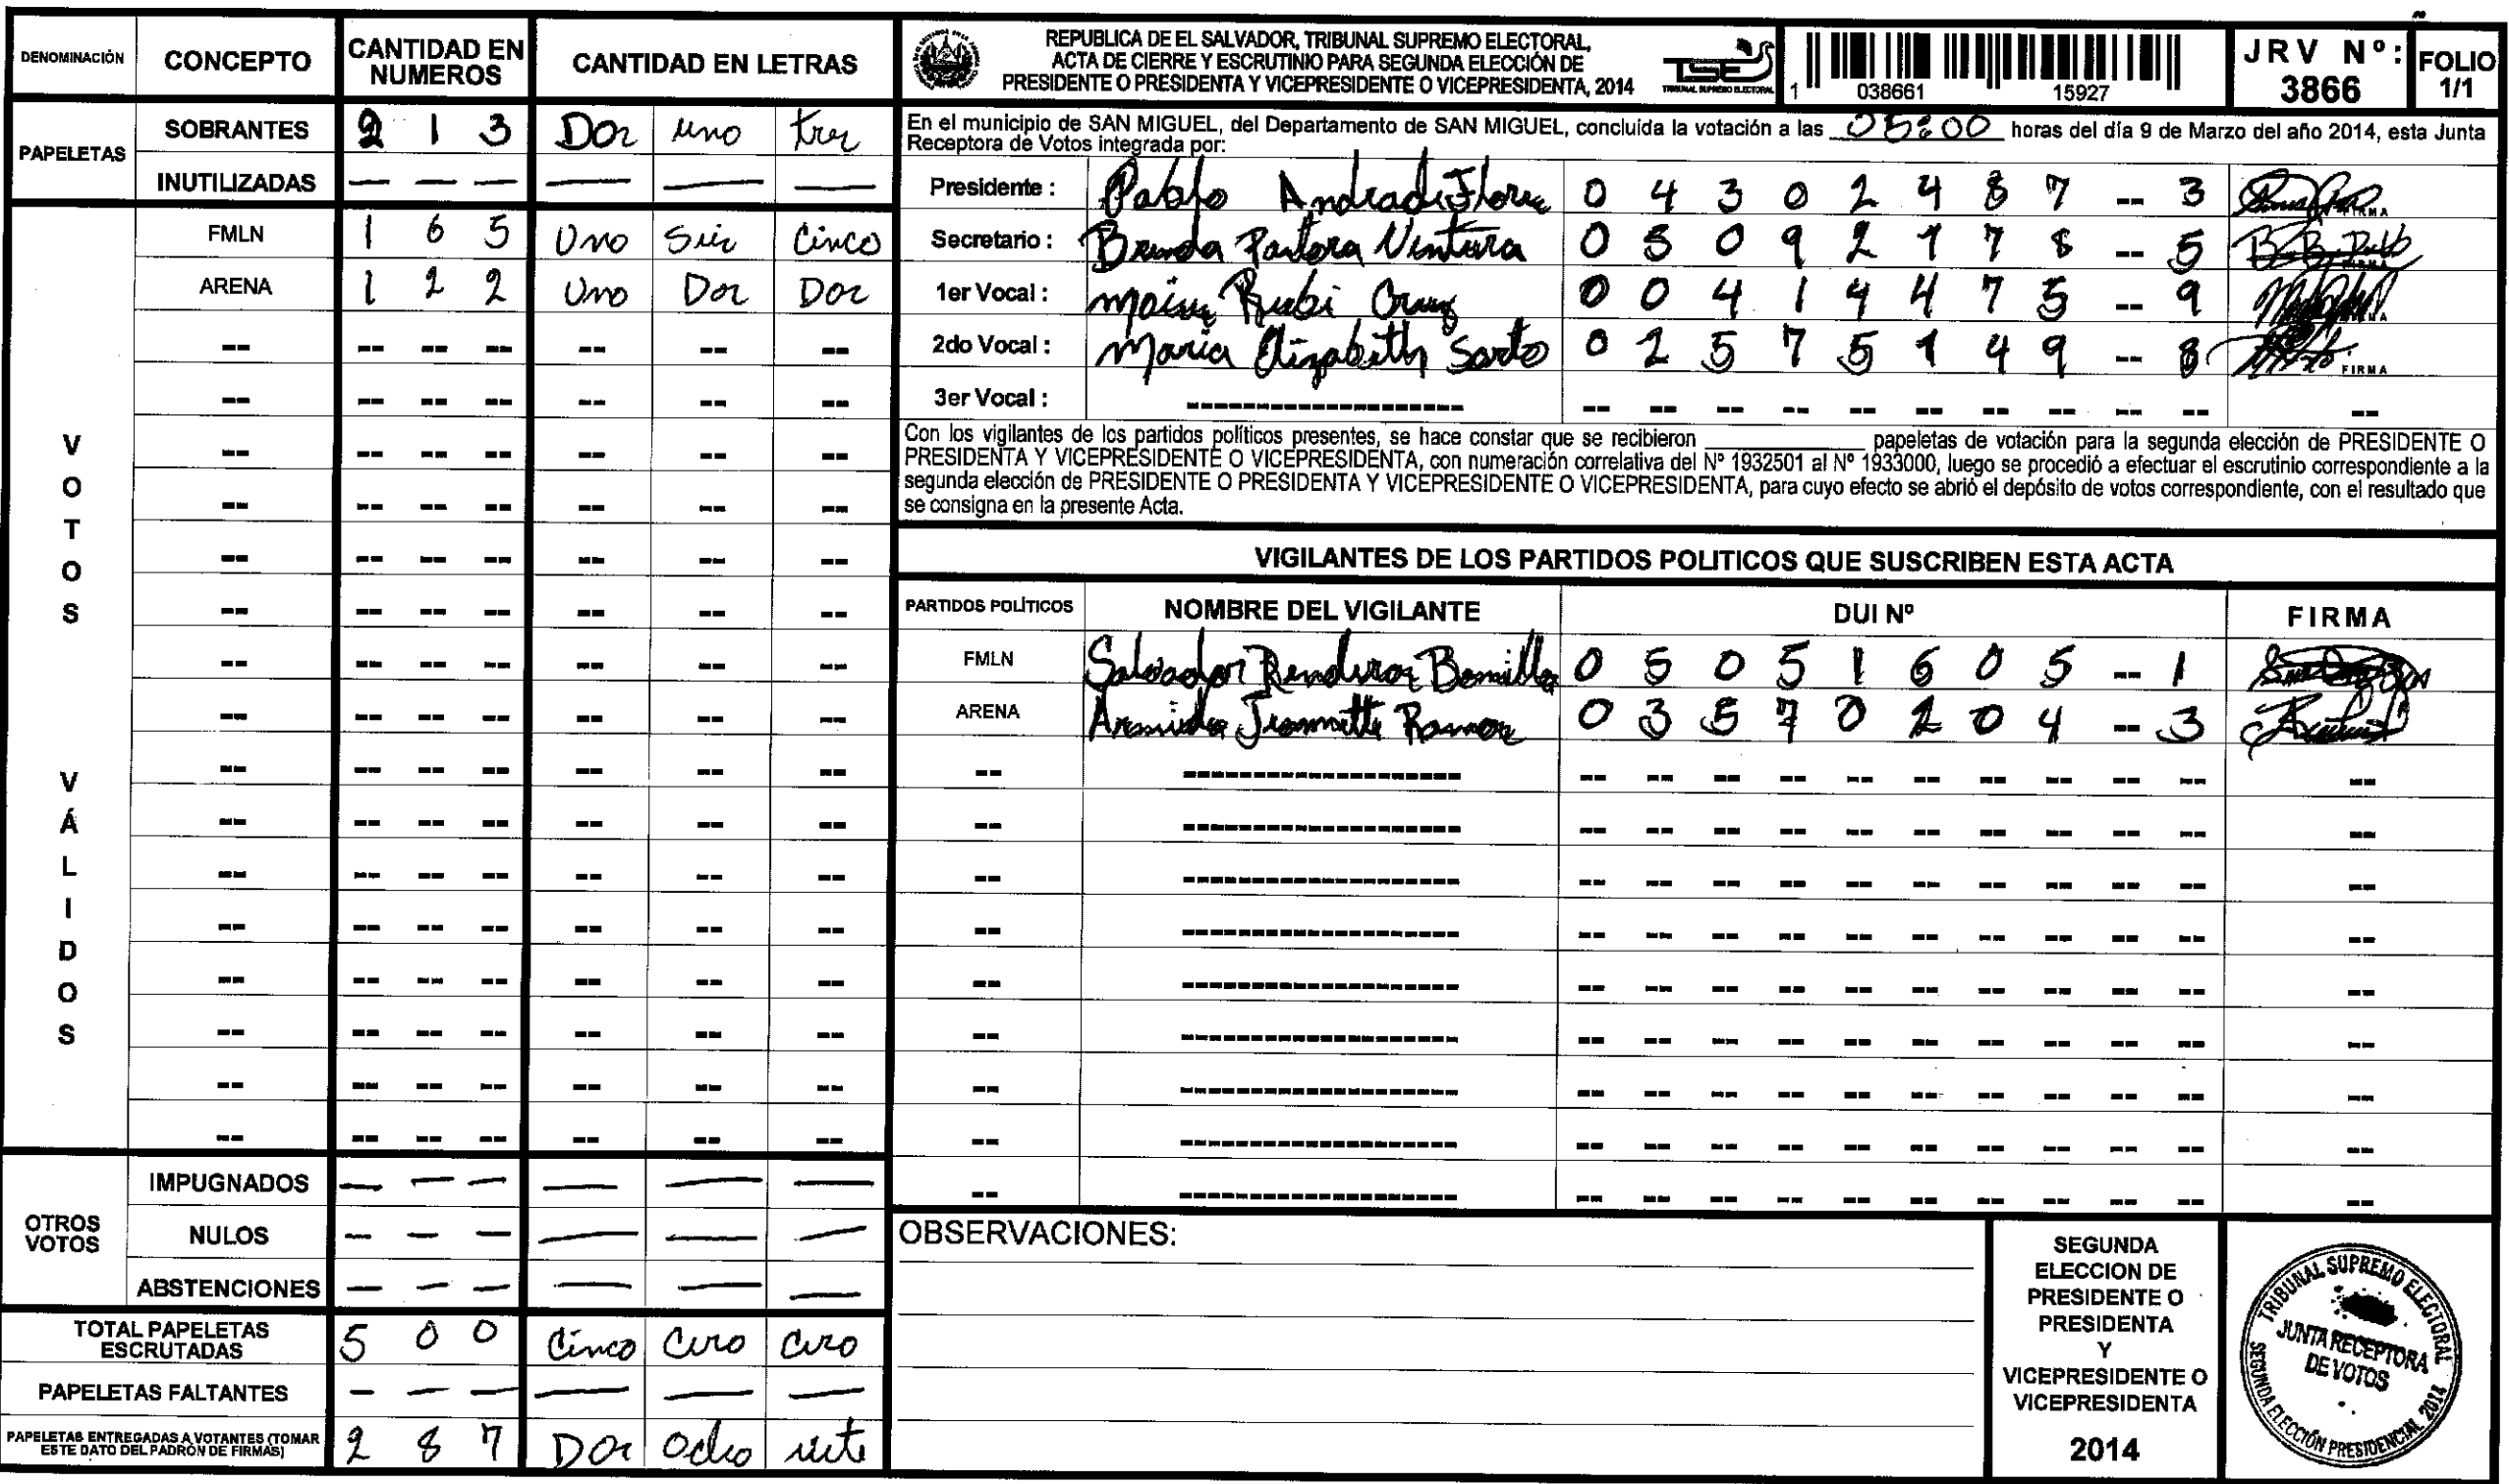 DENOMINACIÓN CONCEPTO CANTIDAD EN NUMEROS CANTIDAD EN LETRAS
PAPELETAS
SOBRANTES 2 1 3 Dos uno tres
INUTILIZADAS — — — — — —
VOTOS VÁLIDOS
FMLN 1 6 5 Uno Seis Cinco
ARENA 1 2 2 Uno Dos Dos
OTROS VOTOS
IMPUGNADOS — — — — — —
NULOS — — — — — —
ABSTENCIONES — — — — — —
TOTAL PAPELETAS ESCRUTADAS 5 0 0 Cinco Cero Cero
PAPELETAS FALTANTES — — — — — —
PAPELETAS ENTREGADAS A VOTANTES (TOMAR ESTE DATO DEL PADRÓN DE FIRMAS) 2 8 7 Dos Ocho siete
REPUBLICA DE EL SALVADOR, TRIBUNAL SUPREMO ELECTORAL,
ACTA DE CIERRE Y ESCRUTINIO PARA SEGUNDA ELECCIÓN DE
PRESIDENTE O PRESIDENTA Y VICEPRESIDENTE O VICEPRESIDENTA, 2014
TSE
TRIBUNAL SUPREMO ELECTORAL
1 038661 15927
JRV Nº: 3866
FOLIO 1/1
En el municipio de SAN MIGUEL, del Departamento de SAN MIGUEL, concluida la votación a las 05:00 horas del día 9 de Marzo del año 2014, esta Junta
Receptora de Votos integrada por:
Presidente : Pablo Andrade Flores 0 4 3 0 2 4 8 7 -- 3 FIRMA
Secretario : Brenda Pastora Ventura 0 5 0 9 2 1 7 8 -- 5 FIRMA
1er Vocal : Moises Rubi Cruz 0 0 4 1 4 4 7 5 -- 9 FIRMA
2do Vocal : Maria Elizabeth Sorto 0 2 5 7 5 1 4 9 -- 8 FIRMA
3er Vocal : -------------------- -- -- -- -- -- -- -- -- -- -- --
Con los vigilantes de los partidos políticos presentes, se hace constar que se recibieron ____________ papeletas de votación para la segunda elección de PRESIDENTE O
PRESIDENTA Y VICEPRESIDENTE O VICEPRESIDENTA, con numeración correlativa del Nº 1932501 al Nº 1933000, luego se procedió a efectuar el escrutinio correspondiente a la
segunda elección de PRESIDENTE O PRESIDENTA Y VICEPRESIDENTE O VICEPRESIDENTA, para cuyo efecto se abrió el depósito de votos correspondiente, con el resultado que
se consigna en la presente Acta.
VIGILANTES DE LOS PARTIDOS POLITICOS QUE SUSCRIBEN ESTA ACTA
PARTIDOS POLÍTICOS NOMBRE DEL VIGILANTE DUI Nº FIRMA
FMLN Salvador Renderos Bonilla 0 5 0 5 1 6 0 5 -- 1
ARENA Jeannette Ramos 0 3 5 7 0 2 0 4 -- 3
OBSERVACIONES:
SEGUNDA
ELECCION DE
PRESIDENTE O
PRESIDENTA
Y
VICEPRESIDENTE O
VICEPRESIDENTA
2014
TRIBUNAL SUPREMO ELECTORAL
JUNTA RECEPTORA
DE VOTOS
SEGUNDA ELECCIÓN PRESIDENCIAL 2014